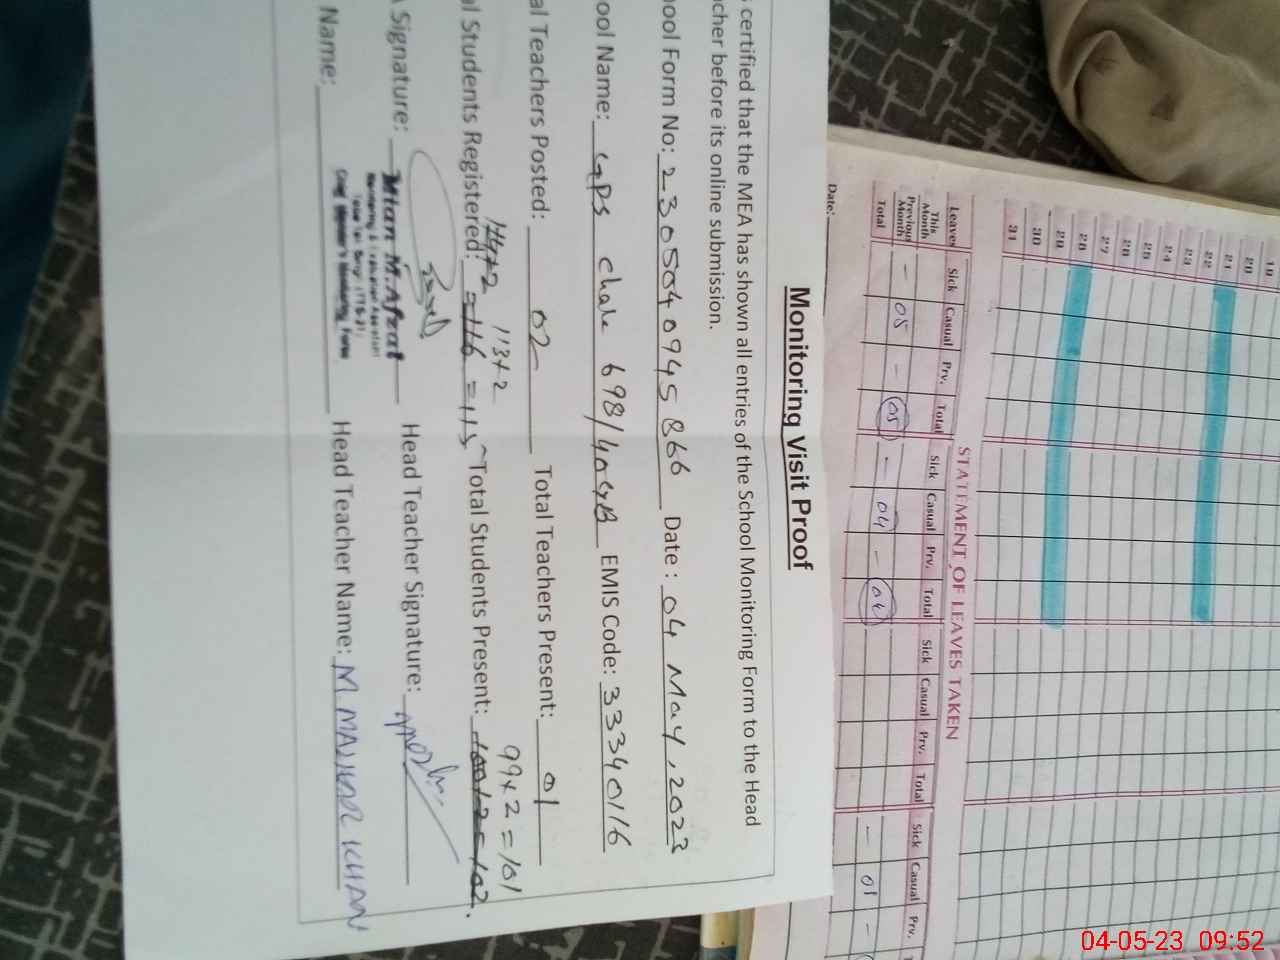 Monitoring Visit Proof
s certified that the MEA has shown all entries of the School Monitoring Form to the Head
cher before its online submission.
ool Form No: 2305040945866 Date: 04 May, 2023
ool Name: GPS chak 698/40GB EMIS Code: 33340116
al Teachers Posted: 02 Total Teachers Present: 01
113+2 99+2=101
al Students Registered: =116 =115 Total Students Present:
A Signature: Head Teacher Signature:
Name: Head Teacher Name: M MAZHAR KHAN
Mian M.Afzal
Monitoring & Evaluation Assistant
Chief Minister's Monitoring Force
Date:
19
20
21
22
23
24
25
26
27
28
29
30
31
STATEMENT OF LEAVES TAKEN
Leaves Sick Casual Prv. Total Sick Casual Prv. Total Sick Casual Prv. Total Sick Casual Prv.
This Month
Previous Month - 05 - 05 - 04 - 04 - 01 -
Total
04-05-23 09:52